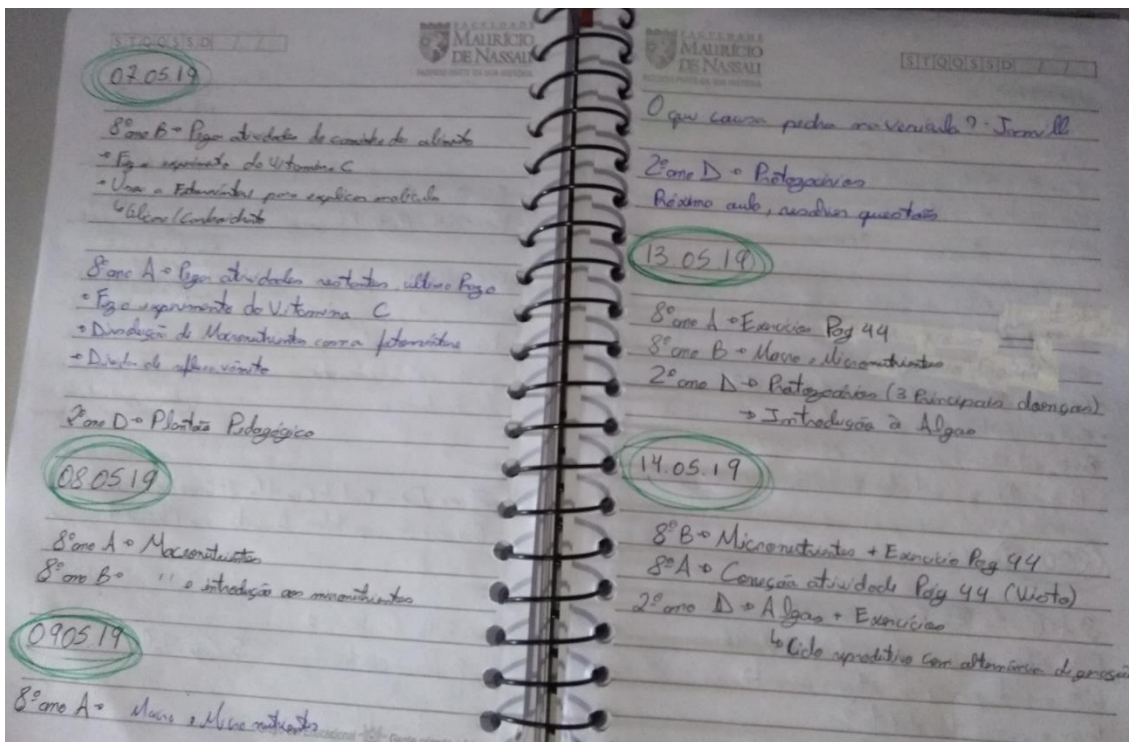 STQQSSD / /
FACULDADE
MAURÍCIO
DE NASSAU
07.05.19
8º ano B → Pegar atividades do caminho do alimento
Fazer experimento da Vitamina C
Usar a
para explicar molécula
↳ Glicose/Carboidrato
8º ano A → Pegar atividades restantes, último Prazo
Fazer experimento da Vitamina C
de Macronutrientes com a
Dúvida de refluxo, vômito
2º ano D → Plantão Pedagógico
08.05.19
8º ano A → Macronutrientes
8º ano B → " e introdução aos micronutrientes
09.05.19
8º ano A → Macro e Micro nutrientes
FACULDADE
MAURÍCIO
DE NASSAU
STQQSSD / /
O que causa pedra na vesícula? -
2º ano D → Protozoários
Próxima aula, resolver questões
13.05.19
8º ano A → Exercício Pag 44
8º ano B → Macro e Micronutrientes
2º ano D → Protozoários (3 Principais doenças)
→ Introdução à Algas
14.05.19
8º B → Micronutrientes + Exercício Pag 44
8º A → Correção atividade Pág 44 (Visto)
2º ano D → Algas + Exercícios
↳ Ciclo reprodutivo com alternância de